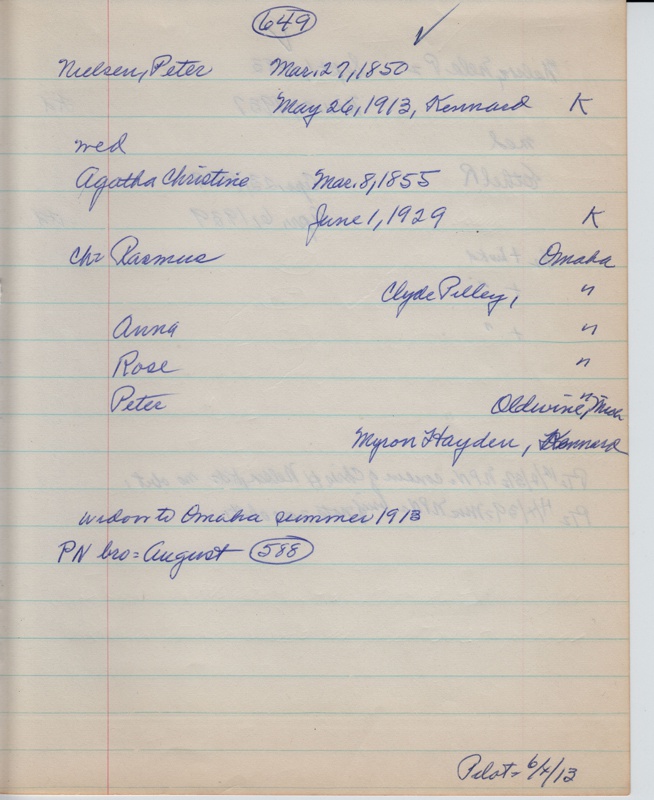 649 ✓
Nielsen, Peter Mar. 27, 1850
May 26, 1913, Kennard K
wed
Agatha Christine Mar. 8, 1855
June 1, 1929 K
ch= Rasmus Omaha
Clyde Pilley, "
Anna "
Rose "
Peter "
Oldwine, Mich
Myron Hayden, Kennard
widow to Omaha summer 1913
PN bro = August 588
Pilot = 6/4/13